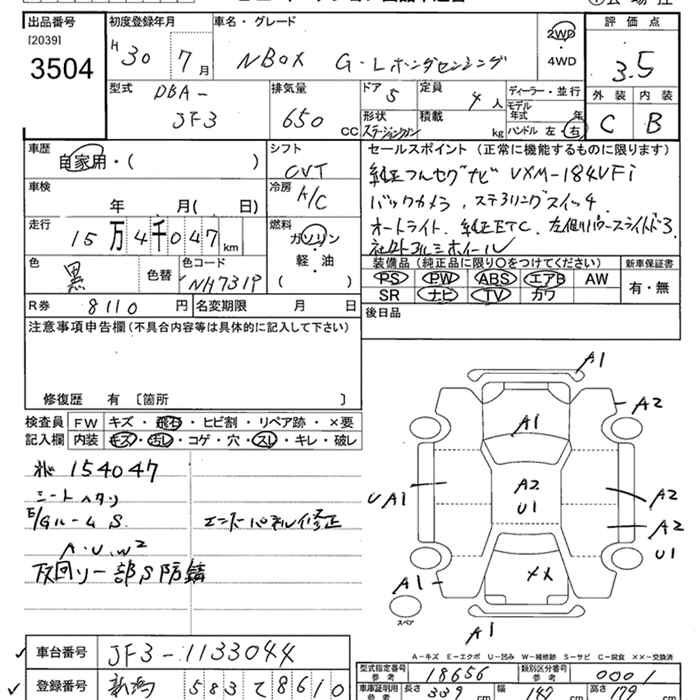 出品番号
[2039]
3504
初度登録年月
H30 7月
車名・グレード
NBOX G・Lホンダセンシング
2WD
4WD
評価点
3.5
外装 内装
C B
型式
DBA-
JF3
排気量
650 CC
ドア 5
形状
ステーションワゴン
定員
4人
積載
kg
ディーラー・並行
モデル
年式 年
ハンドル 左・右
車歴
自家用・( )
シフト
CVT
車検
年 月( 日)
冷房
A/C
走行
15万4千047km
燃料
ガソリン
軽・油
( )
色
黒
色替
色コード
NH731P
R券 8110円
名変期限 月 日
セールスポイント(正常に機能するものに限ります)
純正フルセグナビ VXM-184VFi
バックカメラ、ステアリングスイッチ
オートライト、純正ETC、左側パワースライドドア
社外アルミホイール
装備品(純正品に限り○をつけてください)
PS PW ABS エアB AW
SR ナビ TV カワ
新車保証書
有・無
後日品
注意事項申告欄(不具合内容等は具体的に記入して下さい)
修復歴 有 [箇所 ]
検査員
記入欄
FW キズ・飛石・ヒビ割・リペア跡・×要
内装 キズ・汚レ・コゲ・穴・スレ・キレ・破レ
154047
シートヘタリ
E/Gルーム S
A・U・W2
下回り一部S防錆
エンドパネル修正
A1
A2
A1
A2
U1
UA1
A2
A2
U1
A1
××
A1
スペア
A-キズ E-エクボ U-凹み W-補修跡 S-サビ C-腐食 ××-交換済
車台番号 JF3-1133044
登録番号 新潟 583 て 8610
型式指定番号
参考
18656
類別区分番号
参考
0001
車庫証明用
参考
長さ 339cm
幅 147cm
高さ 179cm